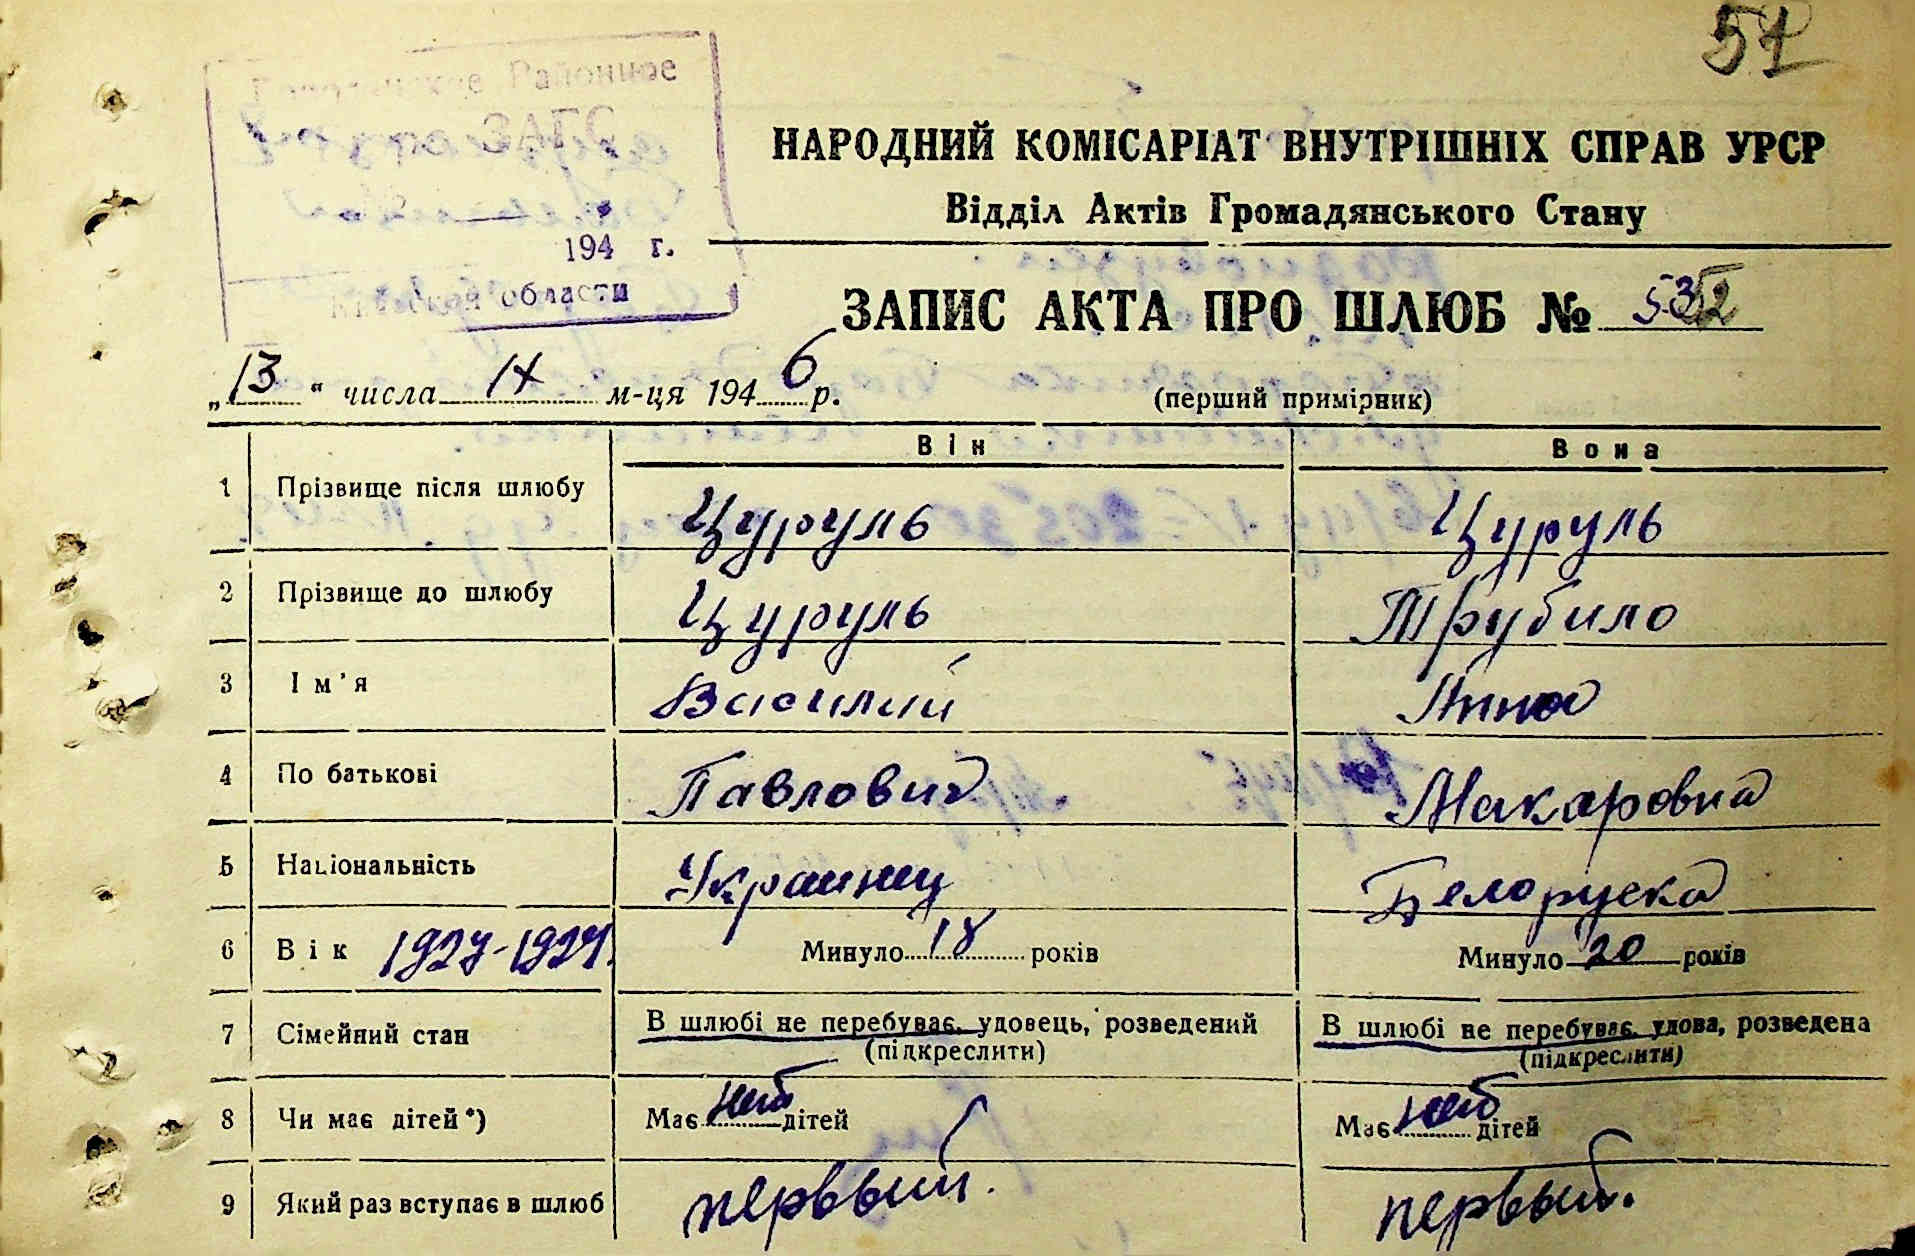 57
Районное
ЗАГС
194 г.
области
НАРОДНИЙ КОМІСАРІАТ ВНУТРІШНІХ СПРАВ УРСР
Відділ Актів Громадянського Стану
ЗАПИС АКТА ПРО ШЛЮБ №
„13“ числа м-ця 1946 р.
(перший примірник)
Він Вона
1 Прізвище після шлюбу Цуруль Цуруль
2 Прізвище до шлюбу Цуруль Трубило
3 Ім'я Василий Анна
4 По батькові Павлович Макаровна
5 Національність Украинец Белоруска
6 Вік 1927-1927. Минуло 18 років Минуло 20 років
7 Сімейний стан В шлюбі не перебуває, удовець, розведений В шлюбі не перебуває, удова, розведена
(підкреслити) (підкреслити)
8 Чи має дітей*) Має нет дітей Має нет дітей
9 Який раз вступає в шлюб первый. первый.